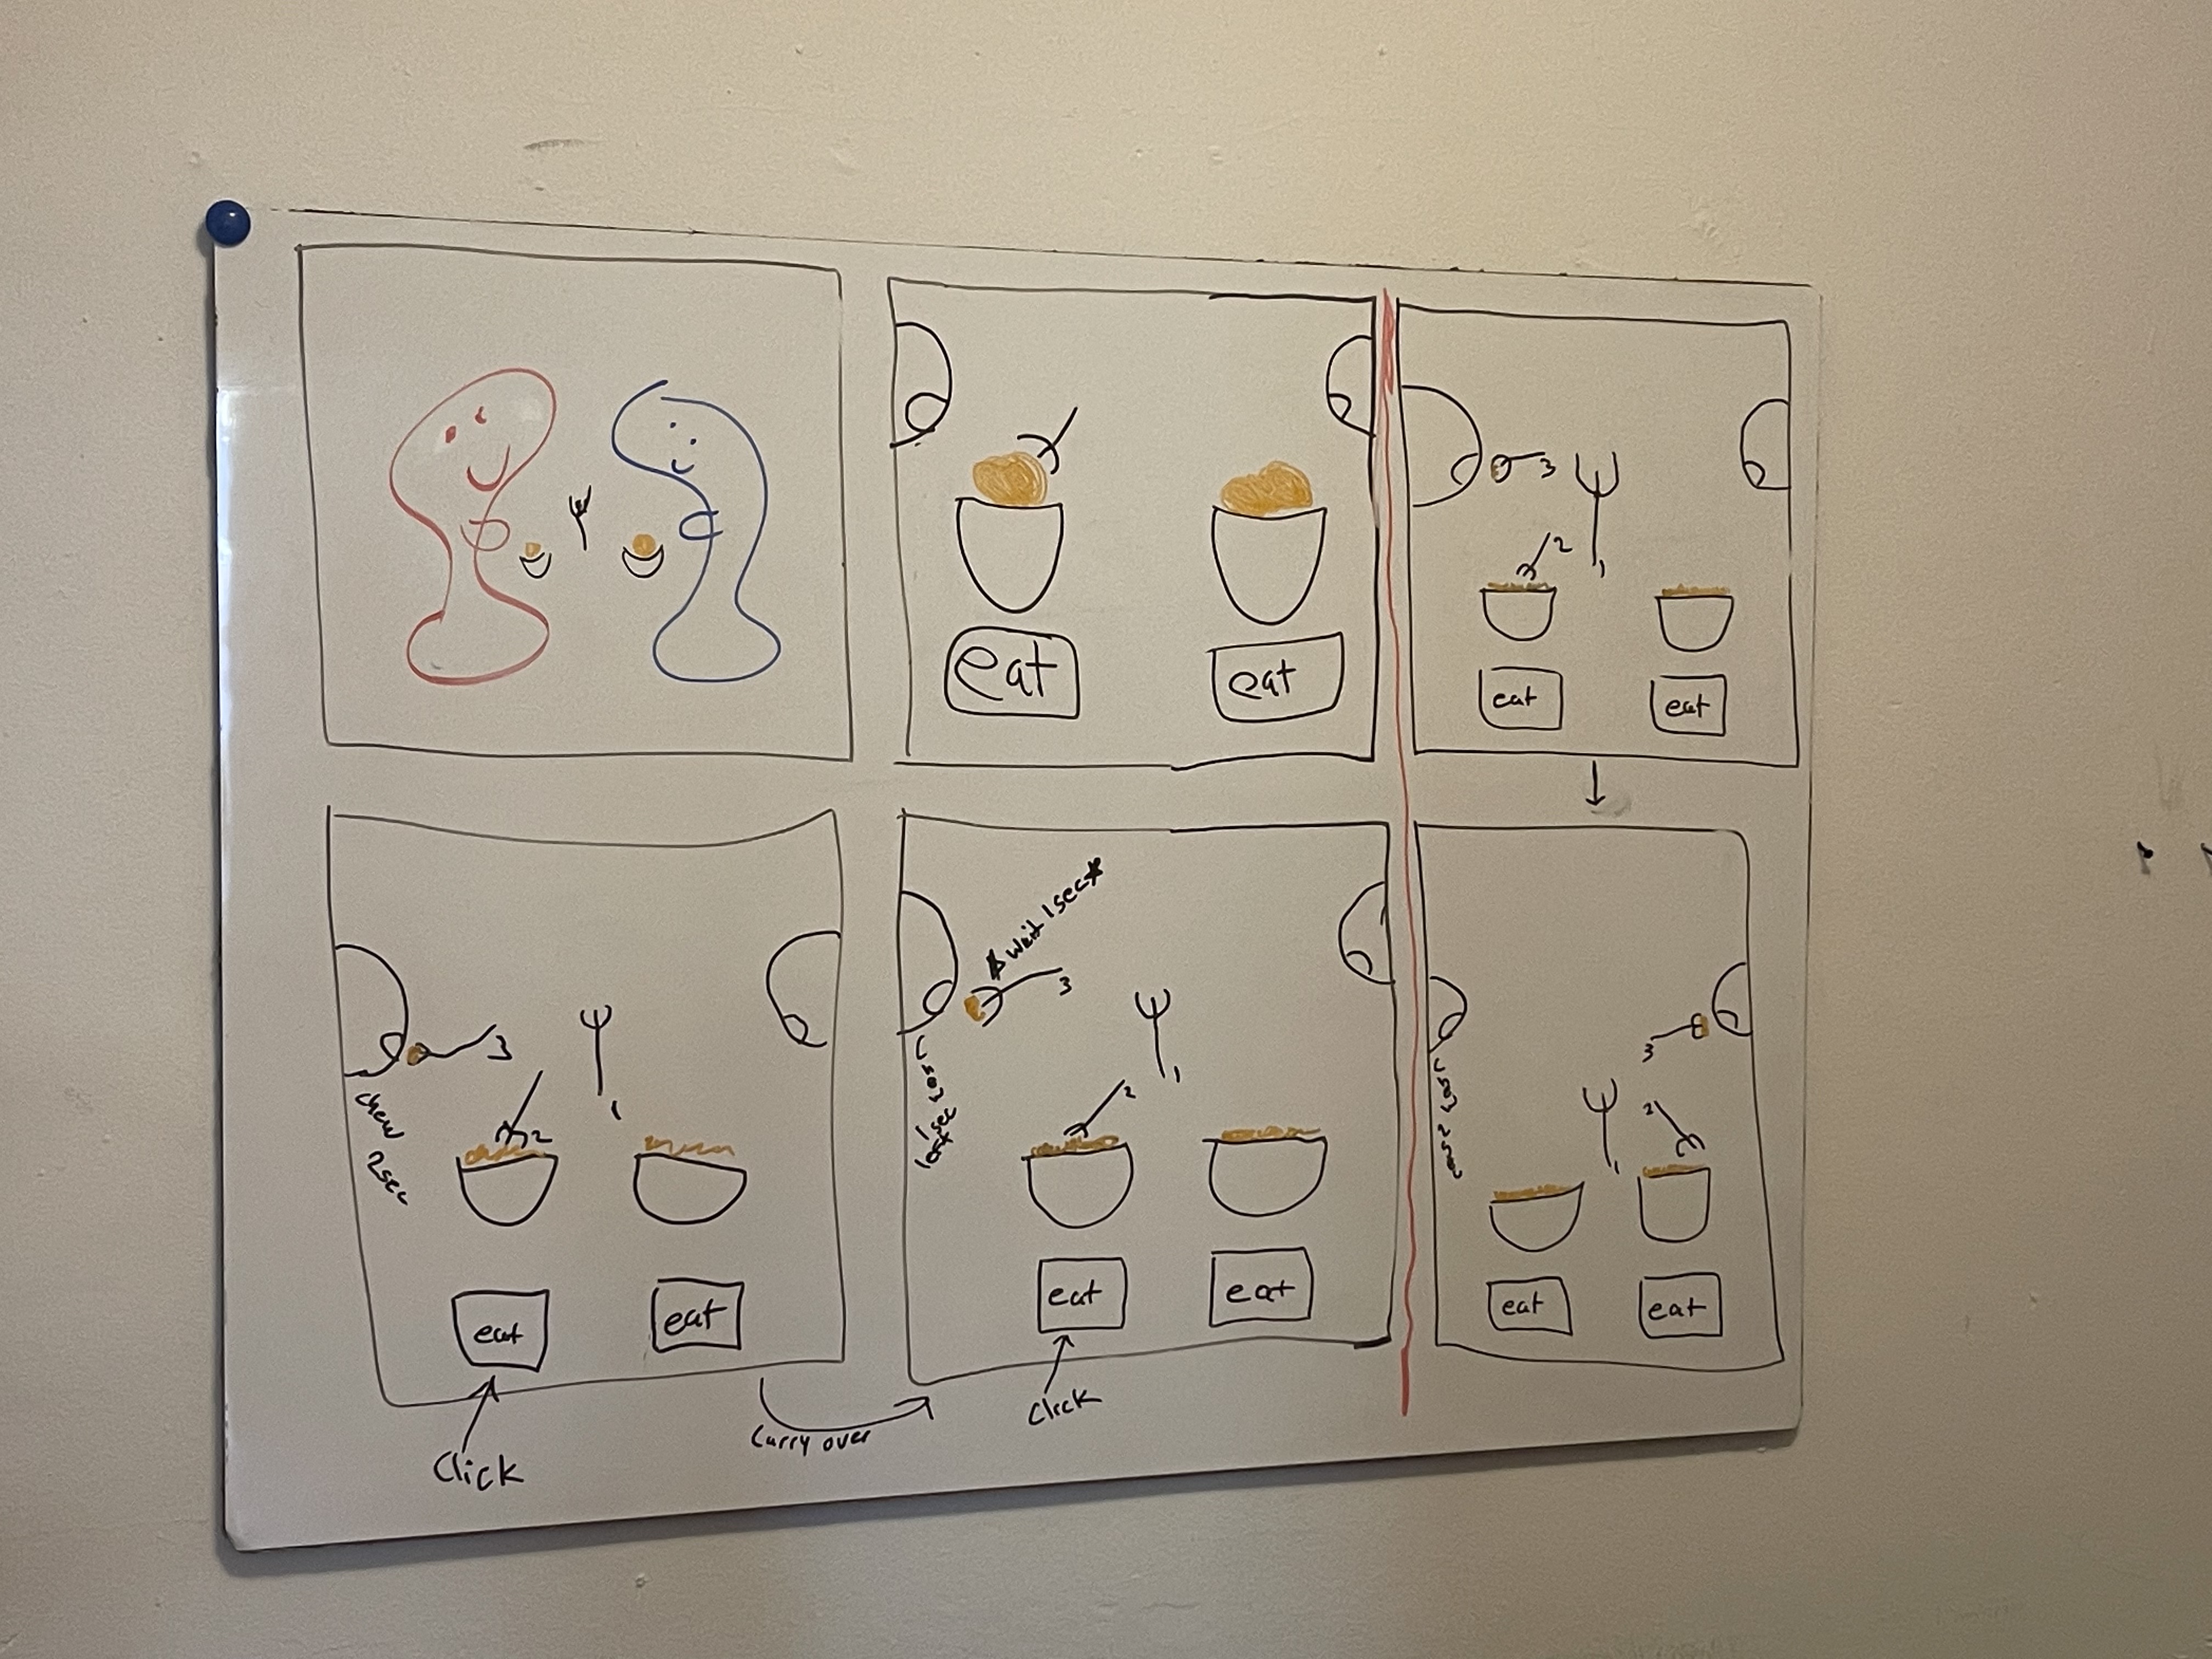 eat
eat
3
2
1
eat
eat
3
2
1
chew
2sec
eat
eat
Click
Carry over
*wait 1sec*
3
1
2
1sec
eat
eat
Click
3
1
2
eat
eat